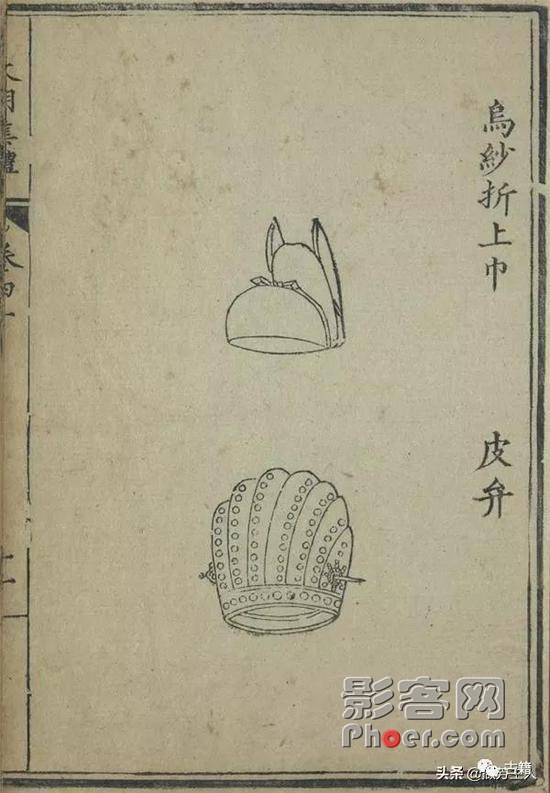 烏紗折上巾
皮弁
大明集禮
卷四十
影客网
Phoer.com
古籍
头条